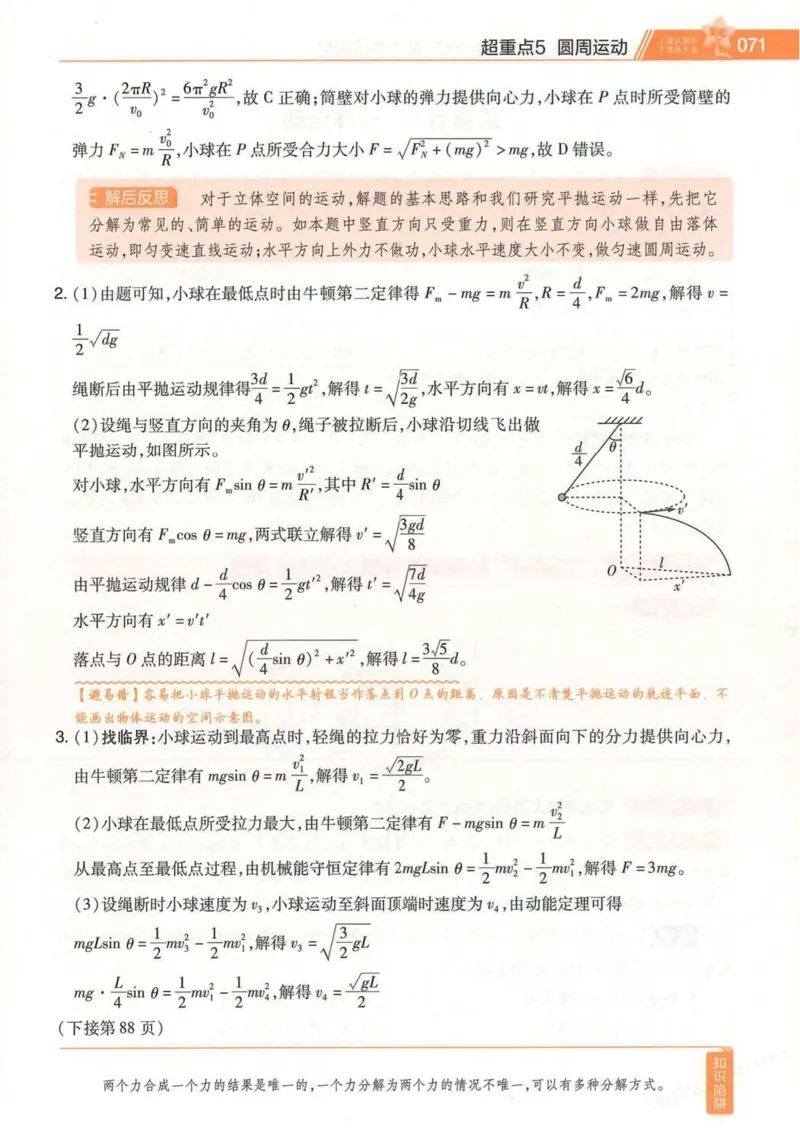 超重点5 圆周运动
071
3/2 g·(2πR/v₀)² = 6π²gR²/v₀²,故 C 正确;筒壁对小球的弹力提供向心力,小球在 P 点时所受筒壁的
弹力 F_N = m v₀²/R,小球在 P 点所受合力大小 F = √(F_N² + (mg)²) > mg,故 D 错误。
解后反思 对于立体空间的运动,解题的基本思路和我们研究平抛运动一样,先把它
分解为常见的、简单的运动。如本题中竖直方向只受重力,则在竖直方向小球做自由落体
运动,即匀变速直线运动;水平方向上外力不做功,小球水平速度大小不变,做匀速圆周运动。
2. (1)由题可知,小球在最低点时由牛顿第二定律得 F_m - mg = m v²/R, R = d/4, F_m = 2mg,解得 v =
1/2 √dg
绳断后由平抛运动规律得 3d/4 = 1/2 gt²,解得 t = √(3d/2g),水平方向有 x = vt,解得 x = √6/4 d。
(2)设绳与竖直方向的夹角为 θ,绳子被拉断后,小球沿切线飞出做
平抛运动,如图所示。
对小球,水平方向有 F_m sin θ = m v′²/R′,其中 R′ = d/4 sin θ
竖直方向有 F_m cos θ = mg,两式联立解得 v′ = √(3gd/8)
由平抛运动规律 d - d/4 cos θ = 1/2 gt′²,解得 t′ = √(7d/4g)
水平方向有 x′ = v′t′
落点与 O 点的距离 l = √((d/4 sin θ)² + x′²),解得 l = 3√5/8 d。
d/4
θ
v′
O
l
x′
【避易错】容易把小球平抛运动的水平射程当作落点到 O 点的距离。原因是不清楚平抛运动的轨迹平面、不
能画出物体运动的空间示意图。
3. (1)找临界:小球运动到最高点时,轻绳的拉力恰好为零,重力沿斜面向下的分力提供向心力,
由牛顿第二定律有 mgsin θ = m v₁²/L,解得 v₁ = √2gL/2。
(2)小球在最低点所受拉力最大,由牛顿第二定律有 F - mgsin θ = m v₂²/L
从最高点至最低点过程,由机械能守恒定律有 2mgLsin θ = 1/2 mv₂² - 1/2 mv₁²,解得 F = 3mg。
(3)设绳断时小球速度为 v₃,小球运动至斜面顶端时速度为 v₄,由动能定理可得
mgLsin θ = 1/2 mv₃² - 1/2 mv₁²,解得 v₃ = √(3/2 gL)
mg · L/4 sin θ = 1/2 mv₁² - 1/2 mv₄²,解得 v₄ = √gL/2
(下接第 88 页)
两个力合成一个力的结果是唯一的,一个力分解为两个力的情况不唯一,可以有多种分解方式。
知识陷阱